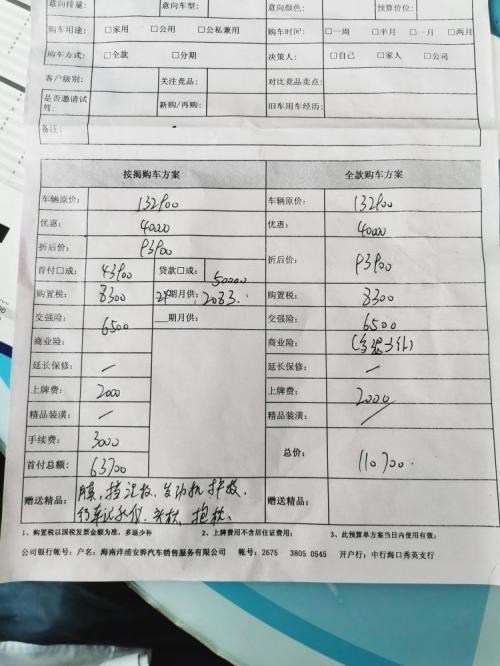 意向排量: 意向车型: 意向颜色: 预算价位:
购车用途: □家用 □公用 □公私兼用 购车时间: □一周 □半月 □一月 □两月
购车方式: □全款 □分期 决策人: □自己 □家人 □公司
客户级别: 关注竞品: 对比竞品卖点:
是否邀请试驾: 新购/再购: 旧车用车经历:
备注:
按揭购车方案 全款购车方案
车辆原价: 132900 车辆原价: 132900
优惠: 40000 优惠: 40000
折后价: 93900 折后价: 93900
首付□成: 43900 贷款□成: 50000
购置税: 8300 24期月供: 2083. 购置税: 8300
交强险: 6500 __期月供: 交强险: 6500
商业险: 商业险:
延长保修: / 延长保修: /
上牌费: 2000 上牌费: 2000
精品装潢: / 精品装潢: /
手续费: 3000 总价: 110700.
首付总额: 63700
赠送精品: 膜, 挡泥板, 发动机护板, 赠送精品:
行车记录仪. 头枕, 抱枕.
1、购置税以国税发票金额为准,多退少补 2、上牌费用不含居住证费用: 3、此预算单方案当日内使用有效:
公司银行帐号: 户名: 海南洋浦安骅汽车销售服务有限公司 帐号: 2675 3805 0545 开户行: 中行海口秀英支行